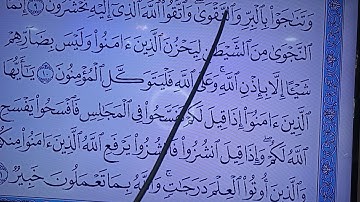 وَتَنَـٰجَوْا۟ بِٱلْبِرِّ وَٱلتَّقْوَىٰ وَٱتَّقُوا۟ ٱللَّهَ ٱلَّذِىٓ إِلَيْهِ تُحْشَرُونَ ٩ إِنَّمَا
ٱلنَّجْوَىٰ مِنَ ٱلشَّيْطَـٰنِ لِيَحْزُنَ ٱلَّذِينَ ءَامَنُوا۟ وَلَيْسَ بِضَآرِّهِمْ
شَيْـًٔا إِلَّا بِإِذْنِ ٱللَّهِ وَعَلَى ٱللَّهِ فَلْيَتَوَكَّلِ ٱلْمُؤْمِنُونَ ١٠ يَـٰٓأَيُّهَا
ٱلَّذِينَ ءَامَنُوٓا۟ إِذَا قِيلَ لَكُمْ تَفَسَّحُوا۟ فِى ٱلْمَجَـٰلِسِ فَٱفْسَحُوا۟ يَفْسَحِ
ٱللَّهُ لَكُمْ وَإِذَا قِيلَ ٱنشُزُوا۟ فَٱنشُزُوا۟ يَرْفَعِ ٱللَّهُ ٱلَّذِينَ ءَامَنُوا۟ مِنكُمْ
وَٱلَّذِينَ أُوتُوا۟ ٱلْعِلْمَ دَرَجَـٰتٍ وَٱللَّهُ بِمَا تَعْمَلُونَ خَبِيرٌ